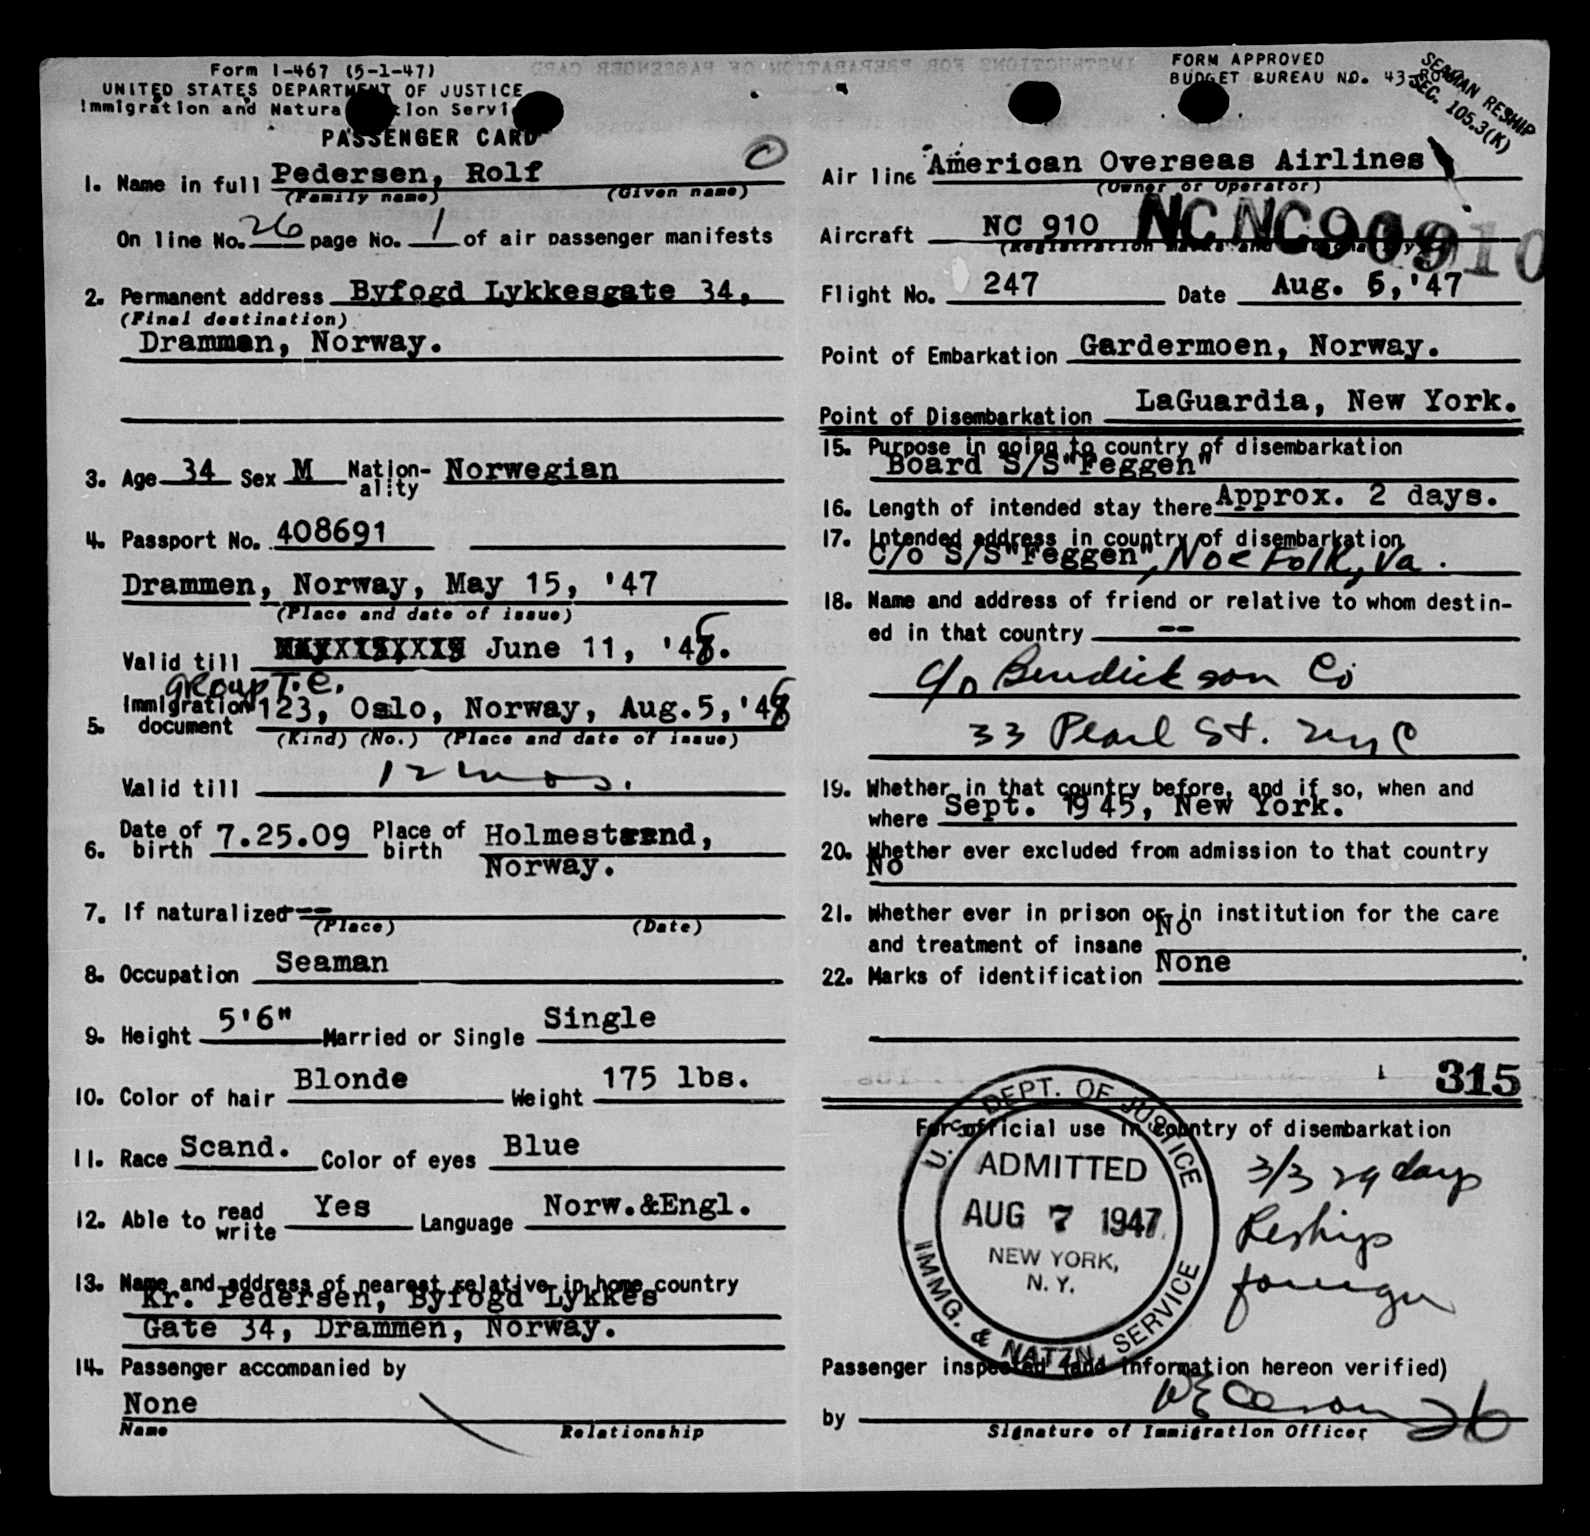 Form I-467 (5-1-47)
UNITED STATES DEPARTMENT OF JUSTICE
Immigration and Naturalization Service
PASSENGER CARD
1. Name in full Pedersen, Rolf
(Family name) (Given name)
On line No. 26 page No. 1 of air passenger manifests
2. Permanent address Byfogd Lykkesgate 34,
(Final destination)
Drammen, Norway.
3. Age 34 Sex M Nation-ality Norwegian
4. Passport No. 408691
Drammen, Norway, May 15, '47
(Place and date of issue)
Valid till June 11, '48.
group T.C.
5. Immigration document 123, Oslo, Norway, Aug.5,'48
(Kind) (No.) (Place and date of issue)
Valid till 12 mos.
6. Date of birth 7.25.09 Place of birth Holmestrand,
Norway.
7. If naturalized ---
(Place) (Date)
8. Occupation Seaman
9. Height 5'6" Married or Single Single
10. Color of hair Blonde Weight 175 lbs.
11. Race Scand. Color of eyes Blue
12. Able to read write Yes Language Norw.&Engl.
13. Name and address of nearest relative in home country
Kr. Pedersen, Byfogd Lykkes
Gate 34, Drammen, Norway.
14. Passenger accompanied by
None
Name Relationship
FORM APPROVED
BUDGET BUREAU NO. 43
SEAMAN RESHIP
SEC. 105.3(K)
Air line American Overseas Airlines
(Owner or Operator)
Aircraft NC 910 NC NC 909 910
(Registration marks and Nationality)
Flight No. 247 Date Aug. 6,'47
Point of Embarkation Gardermoen, Norway.
Point of Disembarkation LaGuardia, New York.
15. Purpose in going to country of disembarkation
Board S/S"Feggen"
16. Length of intended stay there Approx. 2 days.
17. Intended address in country of disembarkation
C/o S/S"Feggen", Norfolk, Va.
18. Name and address of friend or relative to whom destin-
ed in that country --
c/o Bendickson Co
33 Pearl St. NYC
19. Whether in that country before, and if so, when and
where Sept. 1945, New York.
20. Whether ever excluded from admission to that country
No
21. Whether ever in prison or in institution for the care
and treatment of insane No
22. Marks of identification None
315
For official use in country of disembarkation
U.S. DEPT. OF JUSTICE
ADMITTED
AUG 7 1947
NEW YORK,
N. Y.
IMMG. & NATZN. SERVICE
3/3 29 days
Reship
foreign
Passenger inspected (and information hereon verified)
by 26
Signature of Immigration Officer